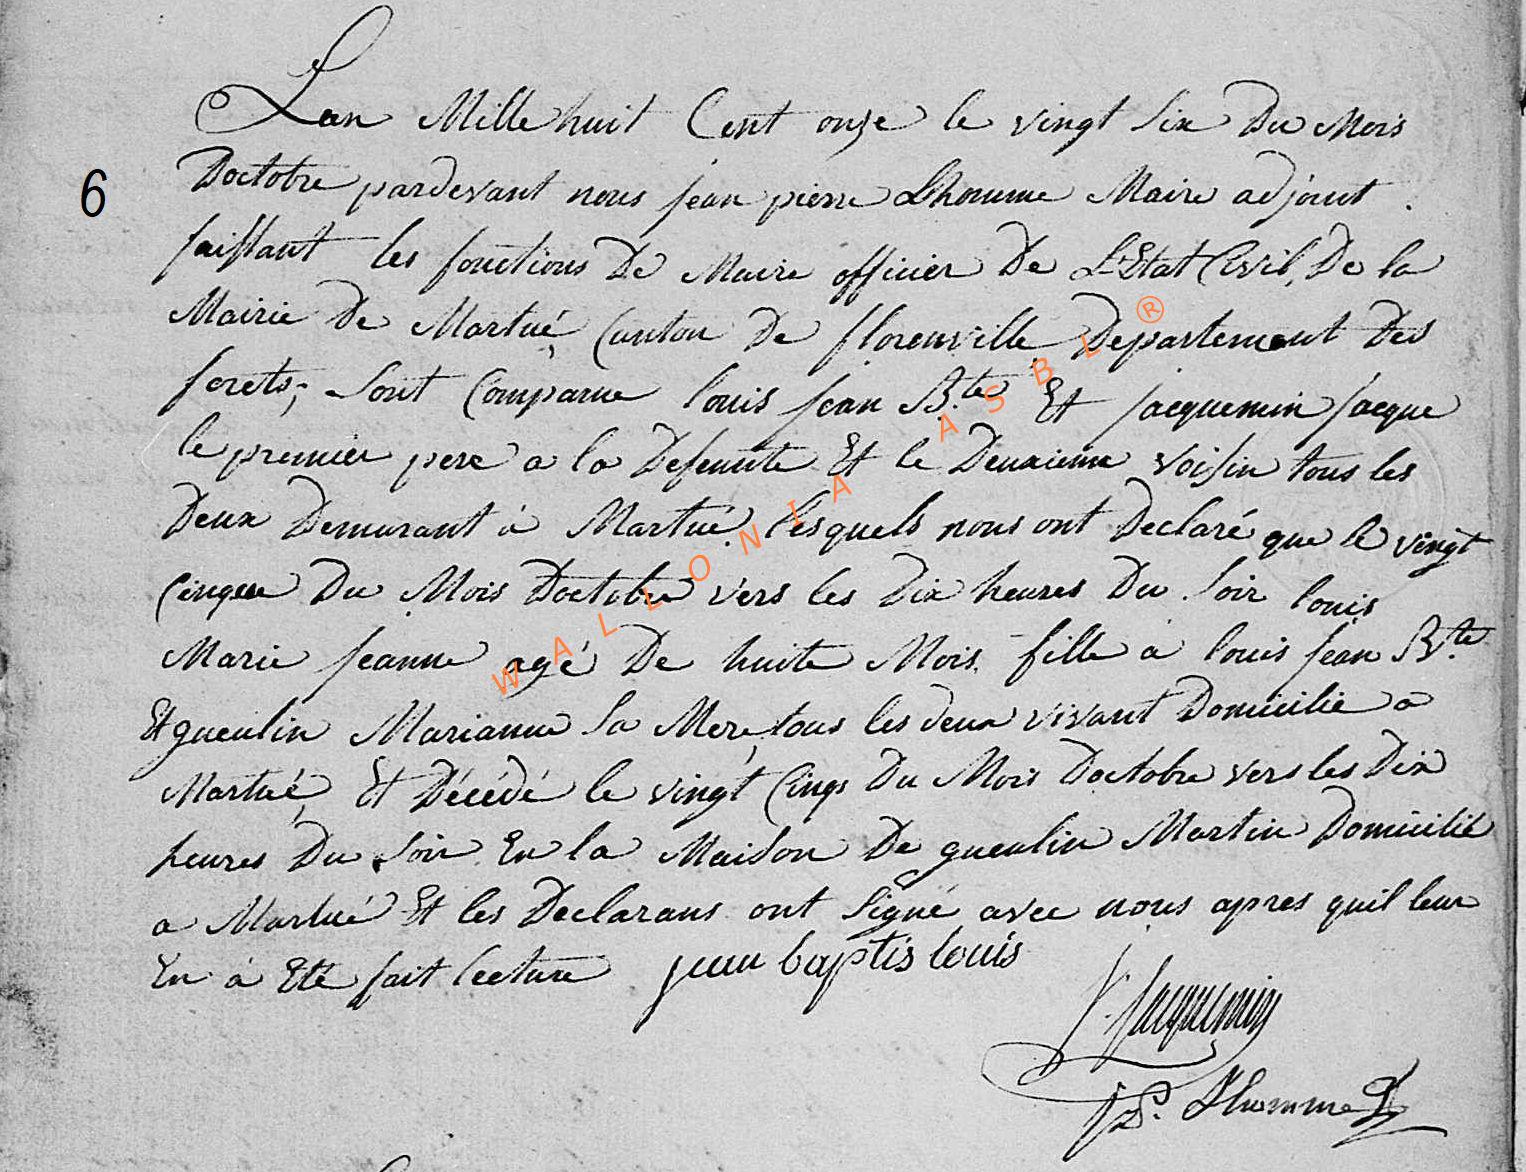 Lan Mille huit Cent onze le vingt Six Du Mois
6
Doctobre pardevant nous jean pierre Lhomme Maire adjoint
faissant les fonctions De Maire officier De L'Etat Civil, De la
Mairie De Martué Canton De florenville Departement Des
forets; Sont Comparue louis jean B.te Et jacquemin jacque
le premier pere a la Defeunte Et le Deuxieme Voisin tous les
Deux Demurant à Martué. lesquels nous ont Declaré que le vingt
Cinque Du Mois Doctobre vers les Dix heures Du Soir louis
Marie jeanne agé De huite Mois fille a louis jean B.te
Et gueulin Marianne Sa Mere, tous les deux vivant Domicilie a
Martué, Et Décédé le vingt Cinqs Du Mois Doctobre vers les Dix
heures Du Soir En la Maison De gueulin Martin Domicilié
a Martué Et les Declarans ont Signé avec nous apres quil leur
En à Eté fait lecture jean baptis louis
J. Jacquemin
JP. Lhomme
WALLONIA ASBL ®